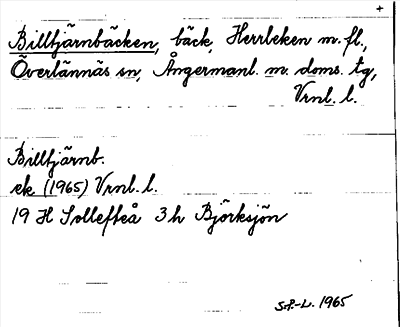 +
Billtjärnbäcken, bäck, Herrleken m.fl.,
Överlännäs sn, Ångermanl. m. doms. tg,
Vrnl. l.
Billtjärnb.
ek. (1965) Vrnl. l.
19 H Sollefteå 3 h Björksjön
S.P.-L. 1965